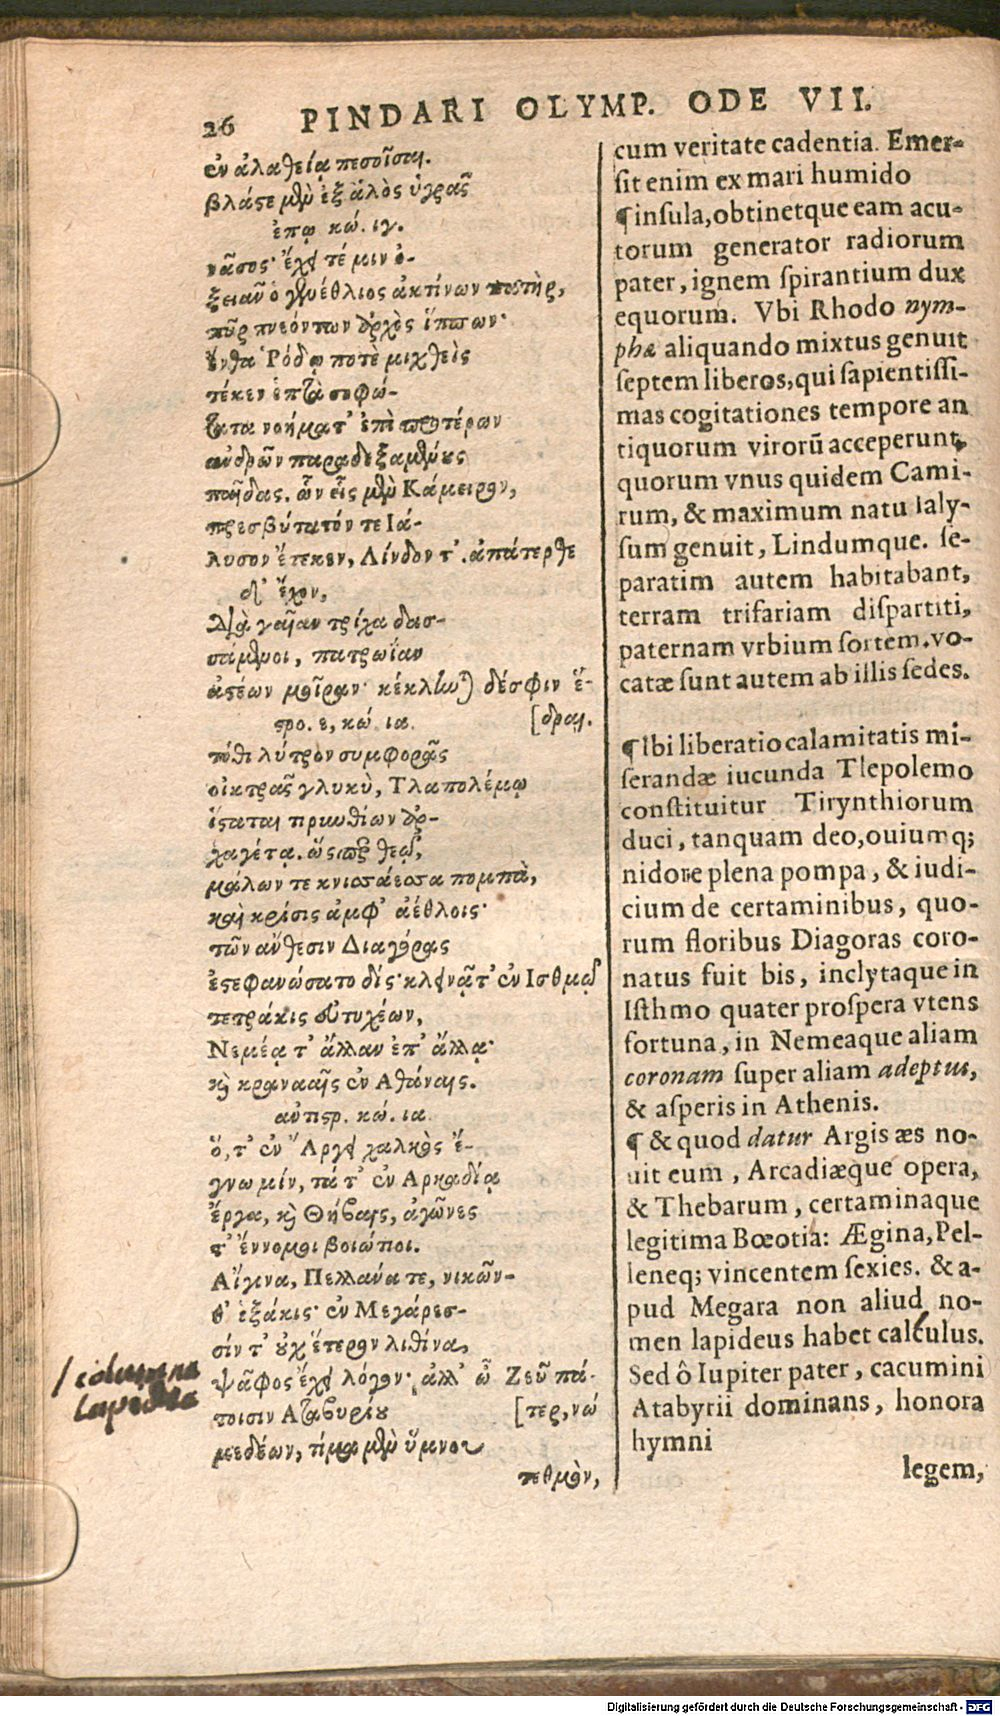 26 PINDARI OLYMP. ODE VII.
ἐν ἀλαθείᾳ πεσοῖσαι.
βλάστε μὲν ἐξ ἁλὸς ὑγρᾶς
ἐπῳ. κώ. ιγ.
νᾶσος· ἔχει τέ μιν ὀ-
ξειᾶν ὁ γενέθλιος ἀκτίνων πατὴρ,
πῦρ πνεόντων ἀρχὸς ἵππων·
ἔνθα Ῥόδῳ ποτὲ μιχθεὶς
τέκεν ἑπτὰ σοφώ-
τατα νοήματ' ἐπὶ προτέρων
ἀνδρῶν παραδεξαμένους
παῖδας. ὧν εἷς μὲν Κάμειρον,
πρεσβύτατόν τε Ιά-
λυσον ἔτεκεν, Λίνδον τ'. ἀπάτερθε
δ' ἔχον,
Διὰ γαῖαν τρίχα δασ-
σάμενοι, πατρωΐαν
ἀστέων μοῖραν· κέκληνται δέ σφιν ἕ-
στρο. ε, κώ. ια. [δραι.
τόθι λύτρον συμφορᾶς
οἰκτρᾶς γλυκὺ, Τλαπολέμῳ
ἵσταται τιρυνθίων ἀρ-
χαγέτᾳ. ὥσπερ θεῷ,
μάλων τε κνισσάεσσα πομπὰ,
καὶ κρίσις ἀμφ' ἀέθλοις·
τῶν ἄνθεσιν Διαγόρας
ἐστεφανώσατο δίς· κλεινᾷ τ' ἐν Ισθμῷ
τετράκις εὐτυχέων,
Νεμέᾳ τ' ἄλλαν ἐπ' ἄλλᾳ·
καὶ κρανααῖς ἐν Αθάναις.
ἀντιστρ. κώ. ια.
ὅ, τ' ἐν Ἄργει χαλκὸς ἔ-
γνω μίν, τά τ' ἐν Αρκαδίᾳ
ἔργα, καὶ Θήβαις, ἀγῶνες
τ' ἔννομοι βοιώτιοι.
Αἴγινα, Πελλάνα τε, νικῶν-
θ' ἑξάκις· ἐν Μεγάρεσ-
σίν τ' οὐχ ἕτερον λιθίνα,
ψᾶφος ἔχει λόγον· ἀλλ' ὦ Ζεῦ πά-
τοισιν Αταβυρίου [τερ, νώ
μεδέων, τίμα μὲν ὕμνου
τεθμὸν,
/ columna
lapidea
cum veritate cadentia. Emer-
sit enim ex mari humido
¶ insula, obtinetque eam acu-
torum generator radiorum
pater, ignem spirantium dux
equorum. Vbi Rhodo nym-
phæ aliquando mixtus genuit
septem liberos, qui sapientissi-
mas cogitationes tempore an
tiquorum virorũ acceperunt,
quorum vnus quidem Cami-
rum, & maximum natu Ialy-
sum genuit, Lindumque. se-
paratim autem habitabant,
terram trifariam dispartiti,
paternam vrbium sortem. vo-
catæ sunt autem ab illis sedes.
¶ Ibi liberatio calamitatis mi-
serandæ iucunda Tlepolemo
constituitur Tirynthiorum
duci, tanquam deo, ouiumq;
nidore plena pompa, & iudi-
cium de certaminibus, quo-
rum floribus Diagoras coro-
natus fuit bis, inclytaque in
Isthmo quater prospera vtens
fortuna, in Nemeaque aliam
coronam super aliam adeptus,
& asperis in Athenis.
¶ & quod datur Argis æs no-
uit eum, Arcadiæque opera,
& Thebarum, certaminaque
legitima Bœotia: Ægina, Pel-
leneq; vincentem sexies. & a-
pud Megara non aliud no-
men lapideus habet calculus.
Sed ô Iupiter pater, cacumini
Atabyrii dominans, honora
hymni
legem,
Digitalisierung gefördert durch die Deutsche Forschungsgemeinschaft - DFG